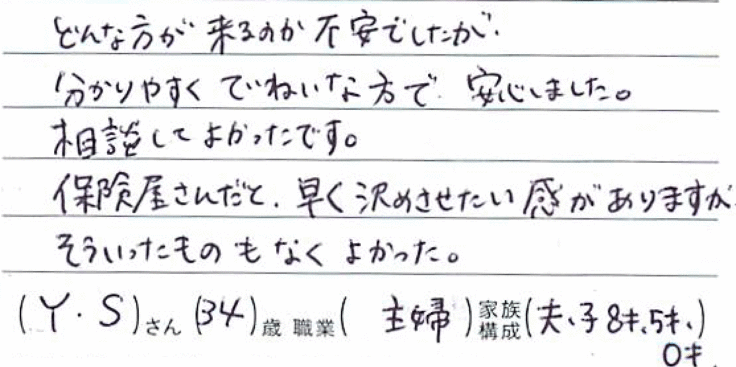 どんな方が来るのか不安でしたが、
分かりやすくていねいな方で、安心しました。
相談してよかったです。
保険屋さんだと、早く決めさせたい感がありますが
そういったものもなくよかった。
(Y・S)さん(34)歳 職業(主婦)家族構成(夫、子8才、5才、)
0才